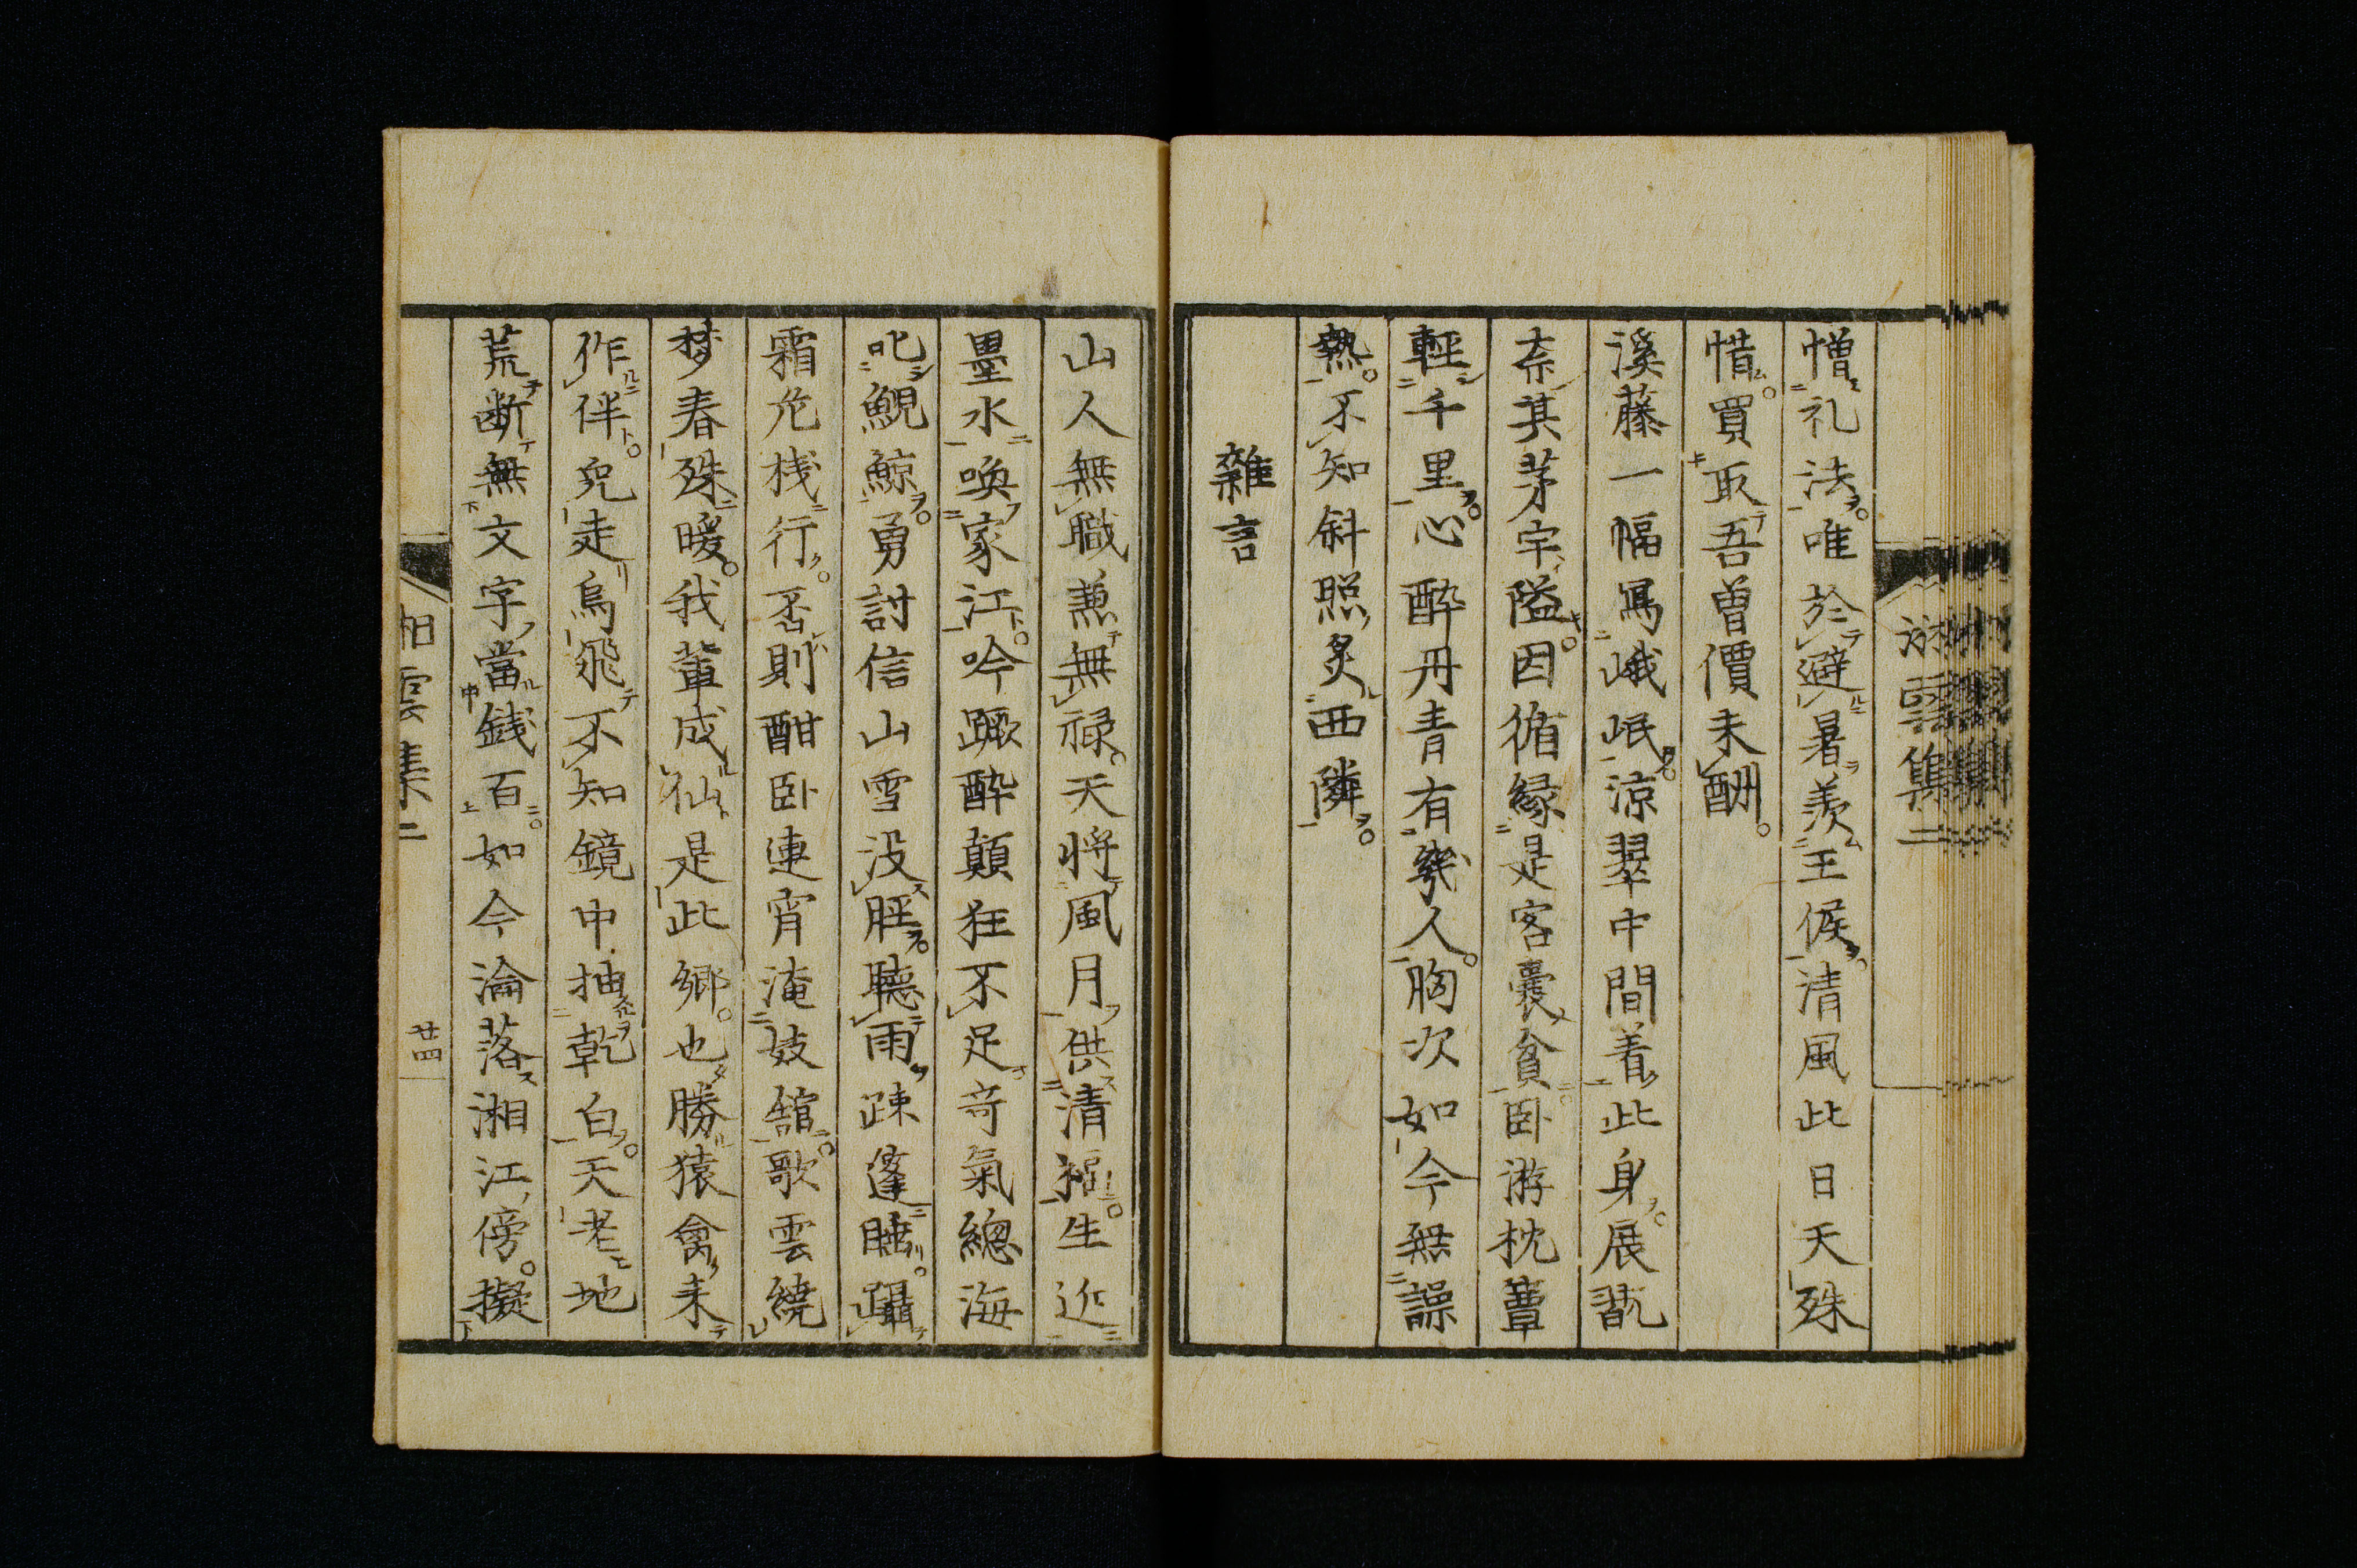 憎礼法唯於避暑羨王侯清風此日天殊
惜買取吾曽價未酬
溪藤一幅冩峨岷涼翠中間着此身展翫
奈其茅宇隘因循縁是客囊貧臥游枕蕈
輕千里心酔丹青有幾人胸次如今無譟
熱不知斜照炙西隣
雜言
山人無職兼無禄天將風月供清福生近
墨水喚家江吟蹶酔顛狂不足竒氣總海
叱鯢鯨勇討信山雪没脛聽雨疎篷睡躡
霜危桟行否則酣臥連宵淹妓舘歌雲繞
梦春殊暖我輩成仙是此郷也勝猿禽来
作伴兎走烏飛不知鏡中抽乾白天老地
荒断無文字當銭百如今淪落湘江傍擬
湘雲集二
廿四